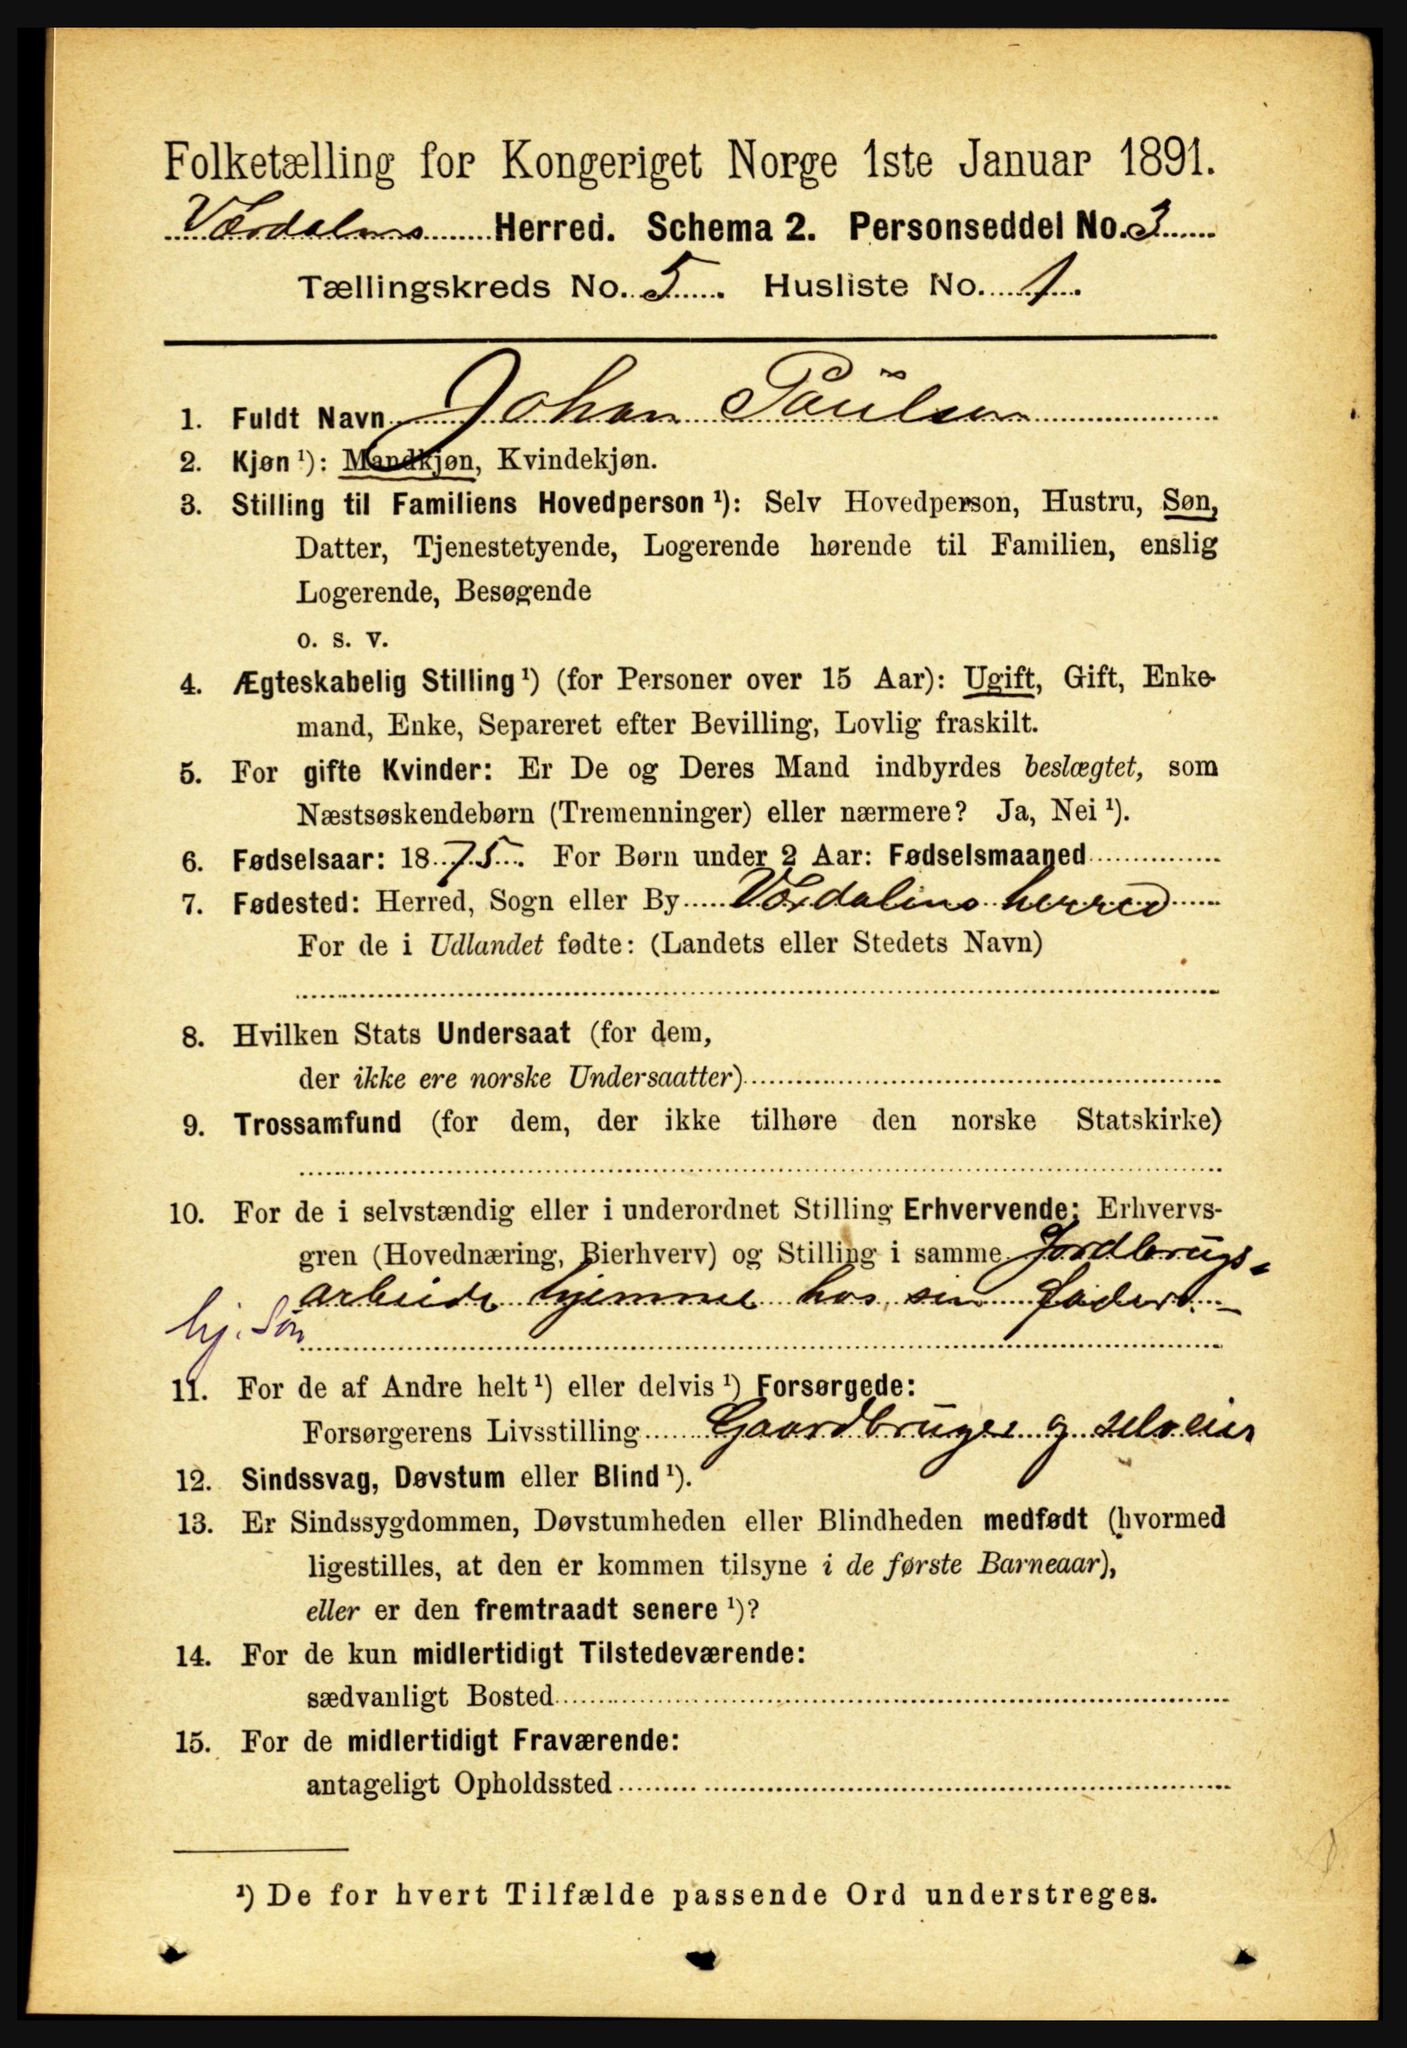 Folketælling for Kongeriget Norge 1ste Januar 1891.
Værdalens Herred. Schema 2. Personseddel No. 3
Tællingskreds No. 5. Husliste No. 1.
1. Fuldt Navn Johan Paulsen
2. Kjøn ¹): Mandkjøn, Kvindekjøn.
3. Stilling til Familiens Hovedperson ¹): Selv Hovedperson, Hustru, Søn,
Datter, Tjenestetyende, Logerende hørende til Familien, enslig
Logerende, Besøgende
o. s. v.
4. Ægteskabelig Stilling ¹) (for Personer over 15 Aar): Ugift, Gift, Enke-
mand, Enke, Separeret efter Bevilling, Lovlig fraskilt.
5. For gifte Kvinder: Er De og Deres Mand indbyrdes beslægtet, som
Næstsøskendebørn (Tremenninger) eller nærmere? Ja, Nei ¹).
6. Fødselsaar: 1875. For Børn under 2 Aar: Fødselsmaaned
7. Fødested: Herred, Sogn eller By Værdalens herred
For de i Udlandet fødte: (Landets eller Stedets Navn)
8. Hvilken Stats Undersaat (for dem,
der ikke ere norske Undersaatter)
9. Trossamfund (for dem, der ikke tilhøre den norske Statskirke)
10. For de i selvstændig eller i underordnet Stilling Erhvervende: Erhvervs-
gren (Hovednæring, Bierhverv) og Stilling i samme Jordbrugs-
arbeide hjemme hos sin fader. -
hj. Søn
11. For de af Andre helt ¹) eller delvis ¹) Forsørgede:
Forsørgerens Livsstilling Gaardbruger og selveier
12. Sindssvag, Døvstum eller Blind ¹).
13. Er Sindssygdommen, Døvstumheden eller Blindheden medfødt (hvormed
ligestilles, at den er kommen tilsyne i de første Barneaar),
eller er den fremtraadt senere ¹)?
14. For de kun midlertidigt Tilstedeværende:
sædvanligt Bosted
15. For de midlertidigt Fraværende:
antageligt Opholdssted
¹) De for hvert Tilfælde passende Ord understreges.